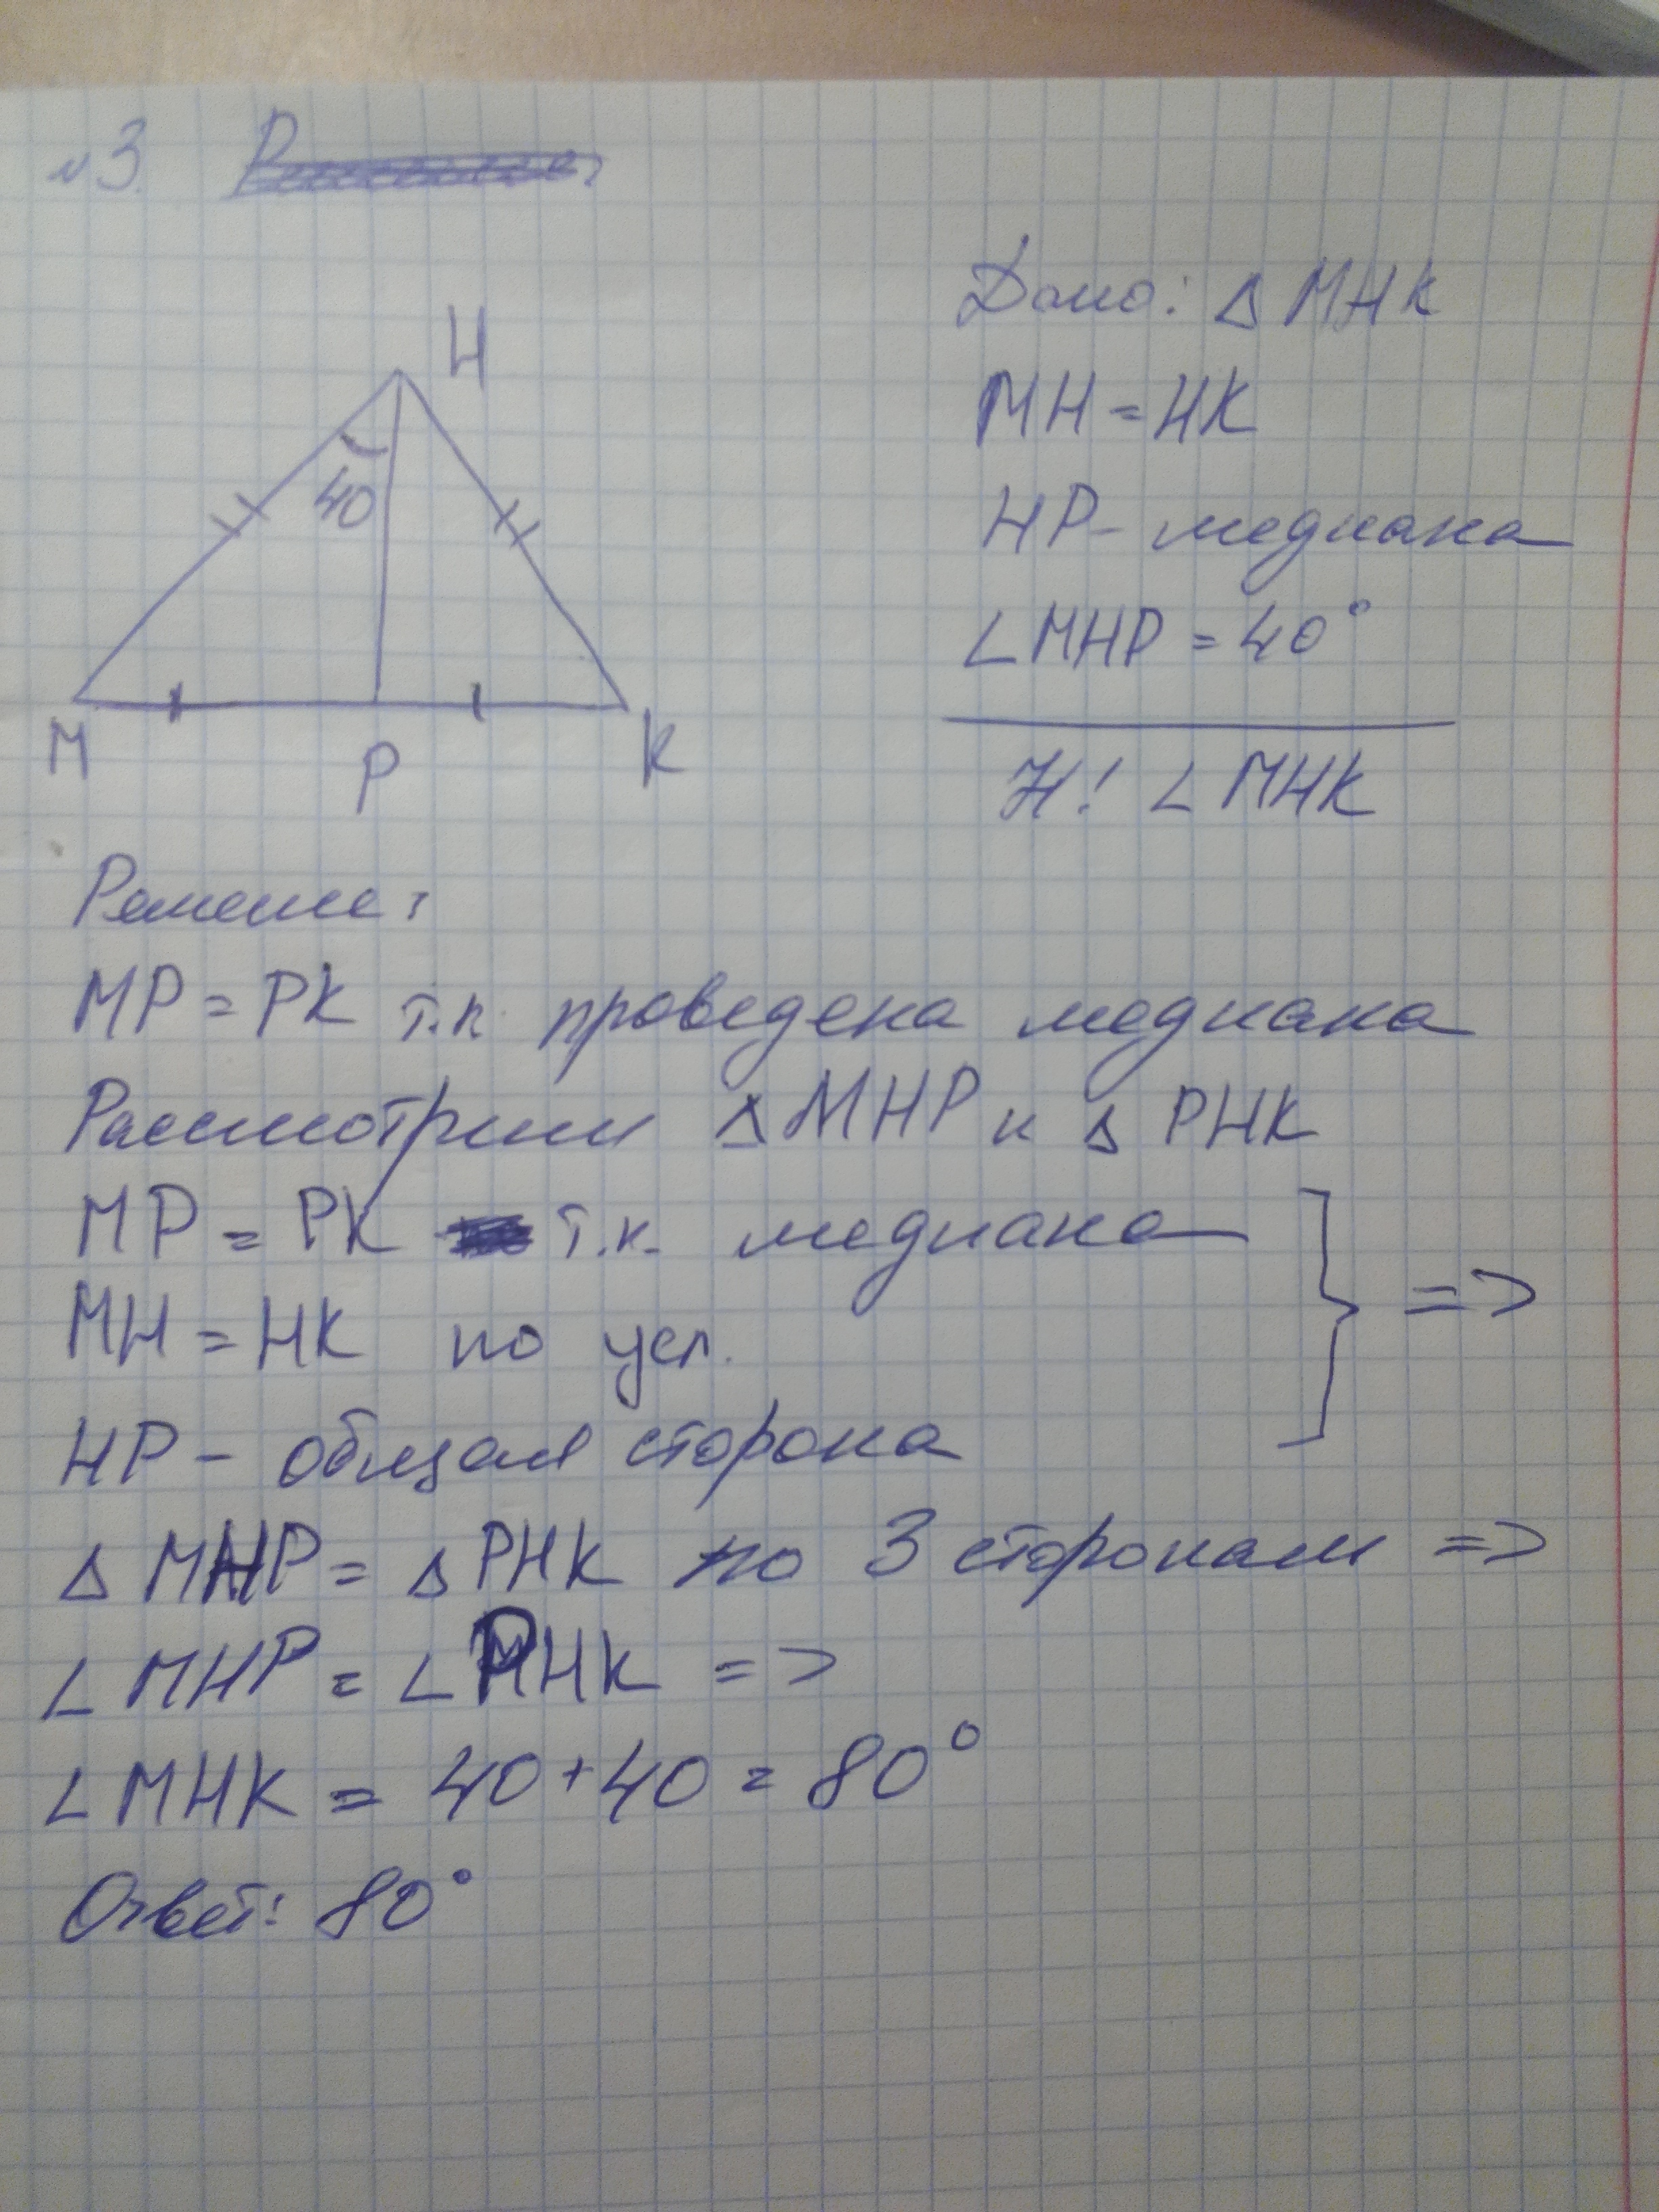 №3.
H
40
M
P
K
Дано: △ MHK
MH = HK
HP - медиана
∠MHP = 40°
Н! ∠ MHK
Решение:
MP = PK т.к. проведена медиана
Рассмотрим △ MHP и △ PHK
MP = PK т.к. медиана
MH = HK по усл.
} =>
HP - общая сторона
△ MHP = △ PHK по 3 сторонам =>
∠ MHP = ∠ PHK =>
∠ MHK = 40 + 40 = 80°
Ответ: 80°